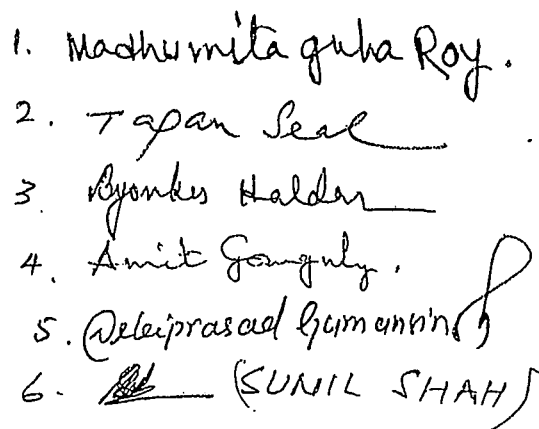 1. Madhumita guha Roy.
2. Tapan Seal
3. Byomkes Halder
4. Amit Ganguly.
5. Debiprasad
6. (SUNIL SHAH)